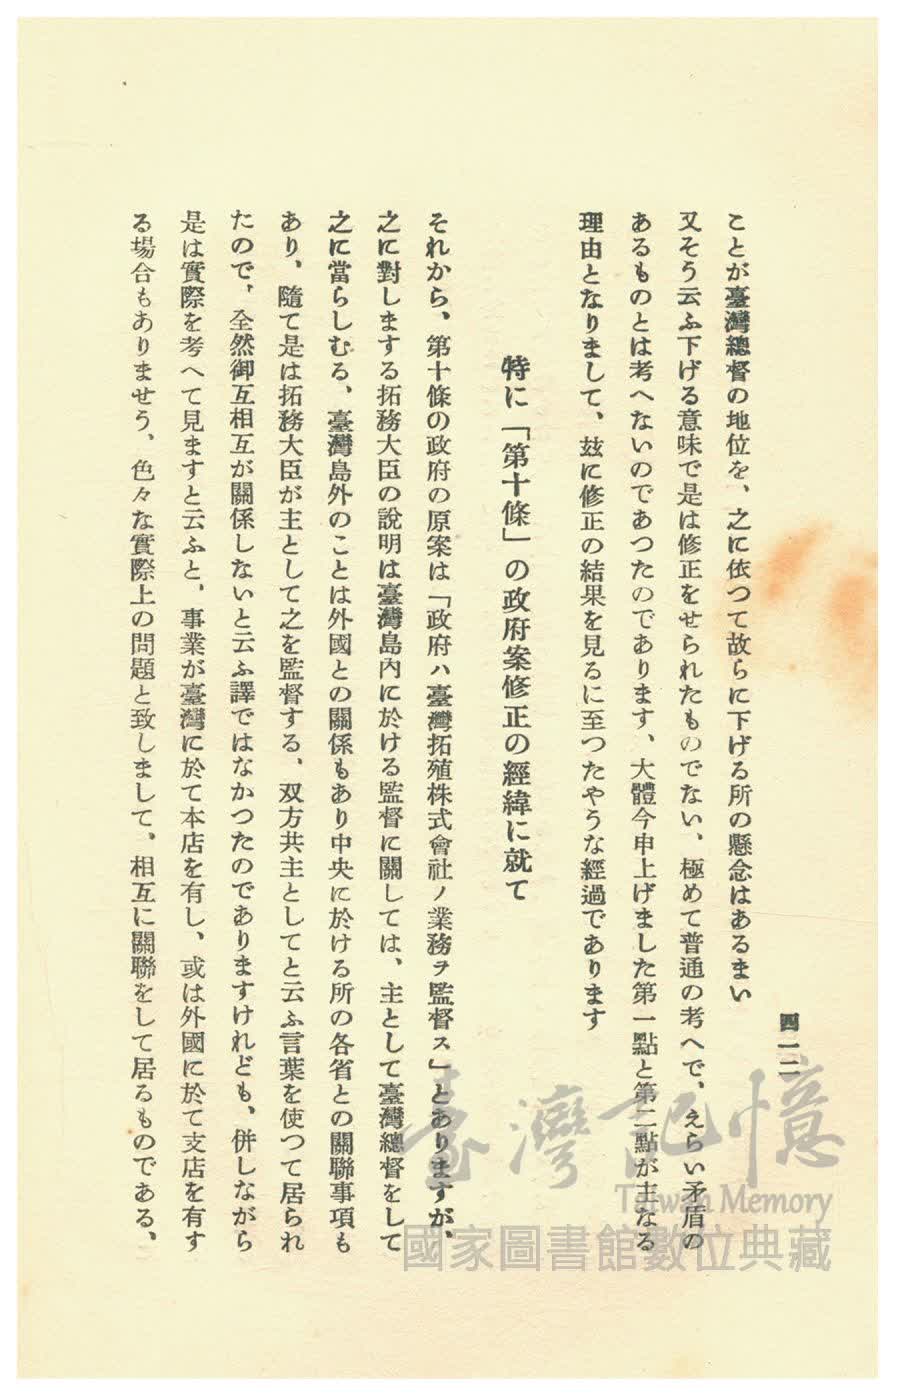 四一二
ことが臺灣總督の地位を、之に依つて故らに下げる所の懸念はあるまい
又そう云ふ下げる意味で是は修正をせられたものでない、極めて普通の考へで、えらい矛盾の
あるものとは考へないのであつたのであります、大體今申上げました第一點と第二點が主なる
理由となりまして、玆に修正の結果を見るに至つたやうな經過であります
特に「第十條」の政府案修正の經緯に就て
それから、第十條の政府の原案は「政府ハ臺灣拓殖株式會社ノ業務ヲ監督ス」とありますが、
之に對しまする拓務大臣の說明は臺灣島內に於ける監督に關しては、主として臺灣總督をして
之に當らしむる、臺灣島外のことは外國との關係もあり中央に於ける所の各省との關聯事項も
あり、隨て是は拓務大臣が主として之を監督する、双方共主としてと云ふ言葉を使つて居られ
たので、全然御互相互が關係しないと云ふ譯ではなかつたのでありますけれども、併しながら
是は實際を考へて見ますと云ふと、事業が臺灣に於て本店を有し、或は外國に於て支店を有す
る場合もありませう、色々な實際上の問題と致しまして、相互に關聯をして居るものである、
臺灣記憶
Taiwan Memory
國家圖書館數位典藏